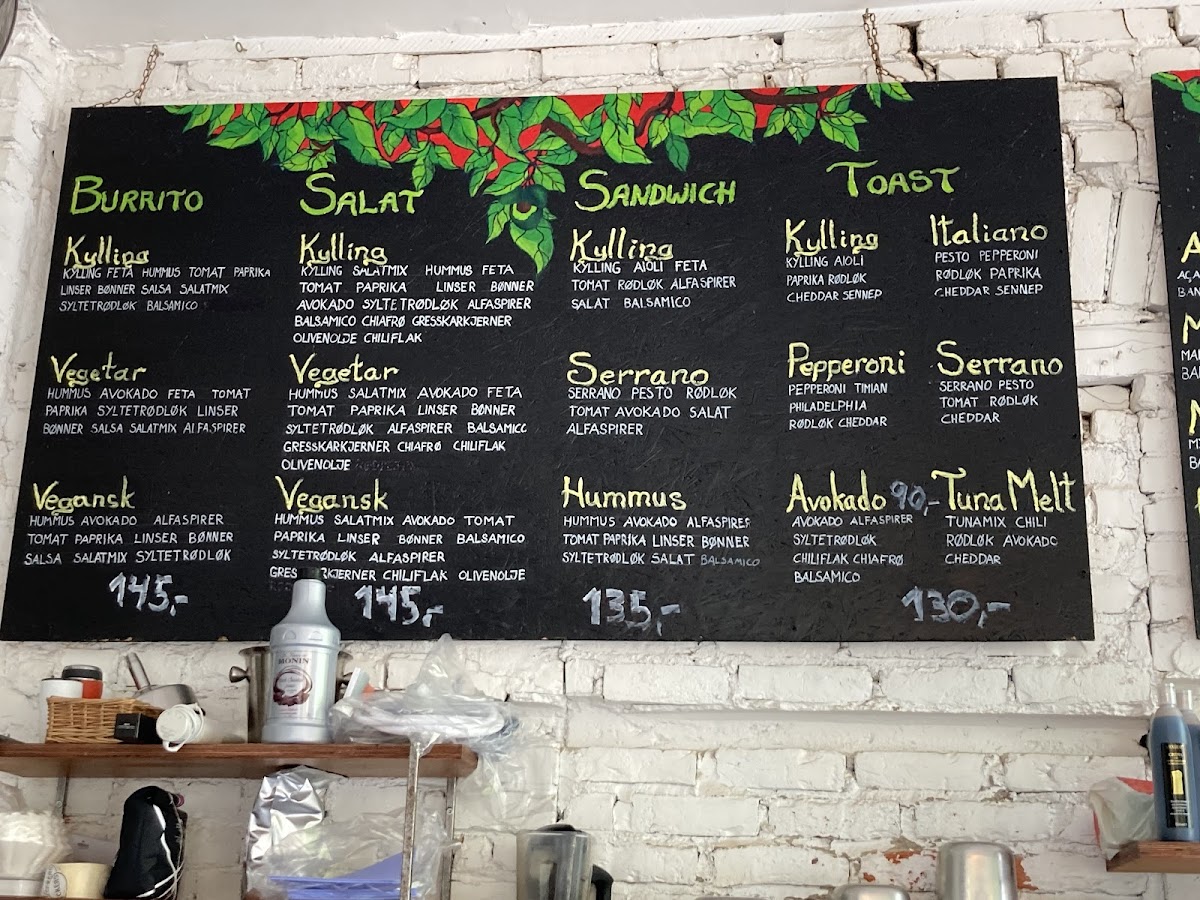 BURRITO
Kylling
KYLLING FETA HUMMUS TOMAT PAPRIKA
LINSER BØNNER SALSA SALATMIX
SYLTETRØDLØK BALSAMICO
Vegetar
HUMMUS AVOKADO FETA TOMAT
PAPRIKA SYLTETRØDLØK LINSER
BØNNER SALSA SALATMIX ALFASPIRER
Vegansk
HUMMUS AVOKADO ALFASPIRER
TOMAT PAPRIKA LINSER BØNNER
SALSA SALATMIX SYLTETRØDLØK
145,-
SALAT
Kylling
KYLLING SALATMIX HUMMUS FETA
TOMAT PAPRIKA LINSER BØNNER
AVOKADO SYLTETRØDLØK ALFASPIRER
BALSAMICO CHIAFRØ GRESSKARKJERNER
OLIVENOLJE CHILIFLAK
Vegetar
HUMMUS SALATMIX AVOKADO FETA
TOMAT PAPRIKA LINSER BØNNER
SYLTETRØDLØK ALFASPIRER BALSAMICO
GRESSKARKJERNER CHIAFRØ CHILIFLAK
OLIVENOLJE
Vegansk
HUMMUS SALATMIX AVOKADO TOMAT
PAPRIKA LINSER BØNNER BALSAMICO
SYLTETRØDLØK ALFASPIRER
GRESSKARKJERNER CHILIFLAK OLIVENOLJE
145,-
SANDWICH
Kylling
KYLLING AIOLI FETA
TOMAT RØDLØK ALFASPIRER
SALAT BALSAMICO
Serrano
SERRANO PESTO RØDLØK
TOMAT AVOKADO SALAT
ALFASPIRER
Hummus
HUMMUS AVOKADO ALFASPIRER
TOMAT PAPRIKA LINSER BØNNER
SYLTETRØDLØK SALAT BALSAMICO
135,-
TOAST
Kylling
KYLLING AIOLI
PAPRIKA RØDLØK
CHEDDAR SENNEP
Pepperoni
PEPPERONI TIMIAN
PHILADELPHIA
RØDLØK CHEDDAR
Avokado 90,-
AVOKADO ALFASPIRER
SYLTETRØDLØK
CHILIFLAK CHIAFRØ
BALSAMICO
Italiano
PESTO PEPPERONI
RØDLØK PAPRIKA
CHEDDAR SENNEP
Serrano
SERRANO PESTO
TOMAT RØDLØK
CHEDDAR
Tuna Melt
TUNAMIX CHILI
RØDLØK AVOKADO
CHEDDAR
130,-
MONIN